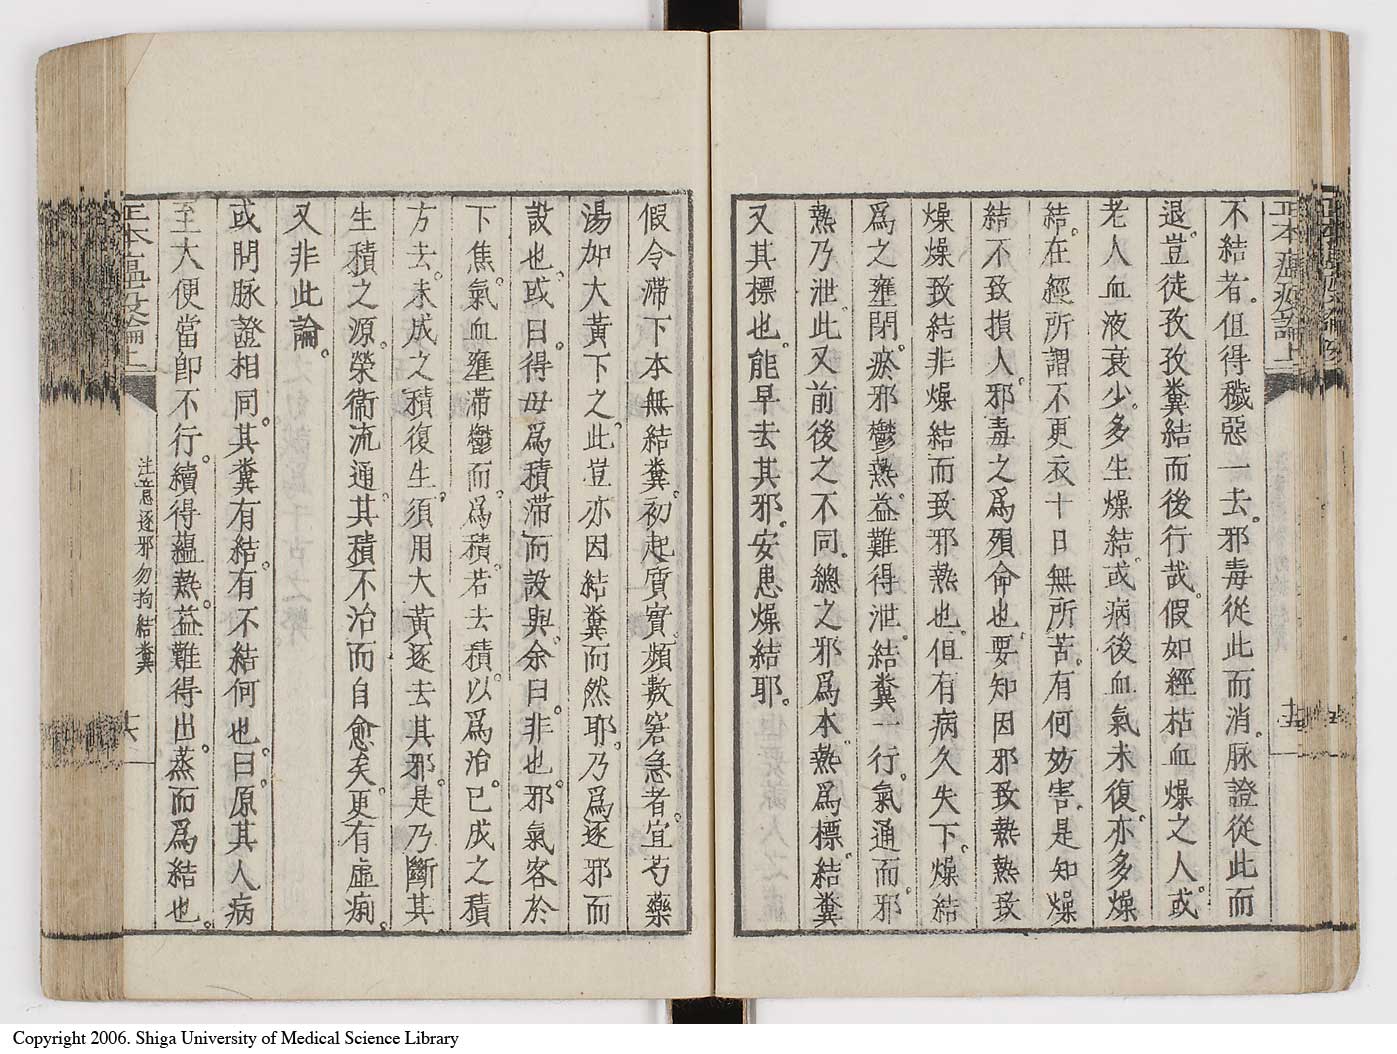 正本瘟疫論上
十五
不結者。但得穢惡一去。邪毒從此而消。脈證從此而
退。豈徒孜孜糞結而後行哉。假如經枯血燥之人。或
老人血液衰少。多生燥結。或病後血氣未復。亦多燥
結。在經所謂不更衣十日無所苦。有何妨害。是知燥
結不致損人。邪毒之爲殞命也。要知因邪致熱。熱致
燥。燥致結。非燥結而致邪熱也。但有病久失下。燥結
爲之壅閉。瘀邪鬱熱。益難得泄。結糞一行。氣通而邪
熱乃泄。此又前後之不同。總之邪爲本。熱爲標。結糞
又其標也。能早去其邪。安患燥結耶。
假令滯下本無結糞。初起質實。頻數窘急者。宜芍藥
湯加大黃下之。此豈亦因結糞而然耶。乃爲逐邪而
設也。或曰。得毋爲積滯而設與。余曰。非也。邪氣客於
下焦。氣血壅滯。鬱而爲積。若去積。以爲治。已成之積
方去。未成之積復生。須用大黃逐去其邪。是乃斷其
生積之源。榮衞流通。其積不治而自愈矣。更有虛痢。
又非此論。
或問脈證相同。其糞有結。有不結何也。曰。原其人病
至大便當卽不行。續得蘊熱。益難得出。蒸而爲結也。
注意逐邪勿拘結糞
正本瘟疫論上
十六
Copyright 2006. Shiga University of Medical Science Library